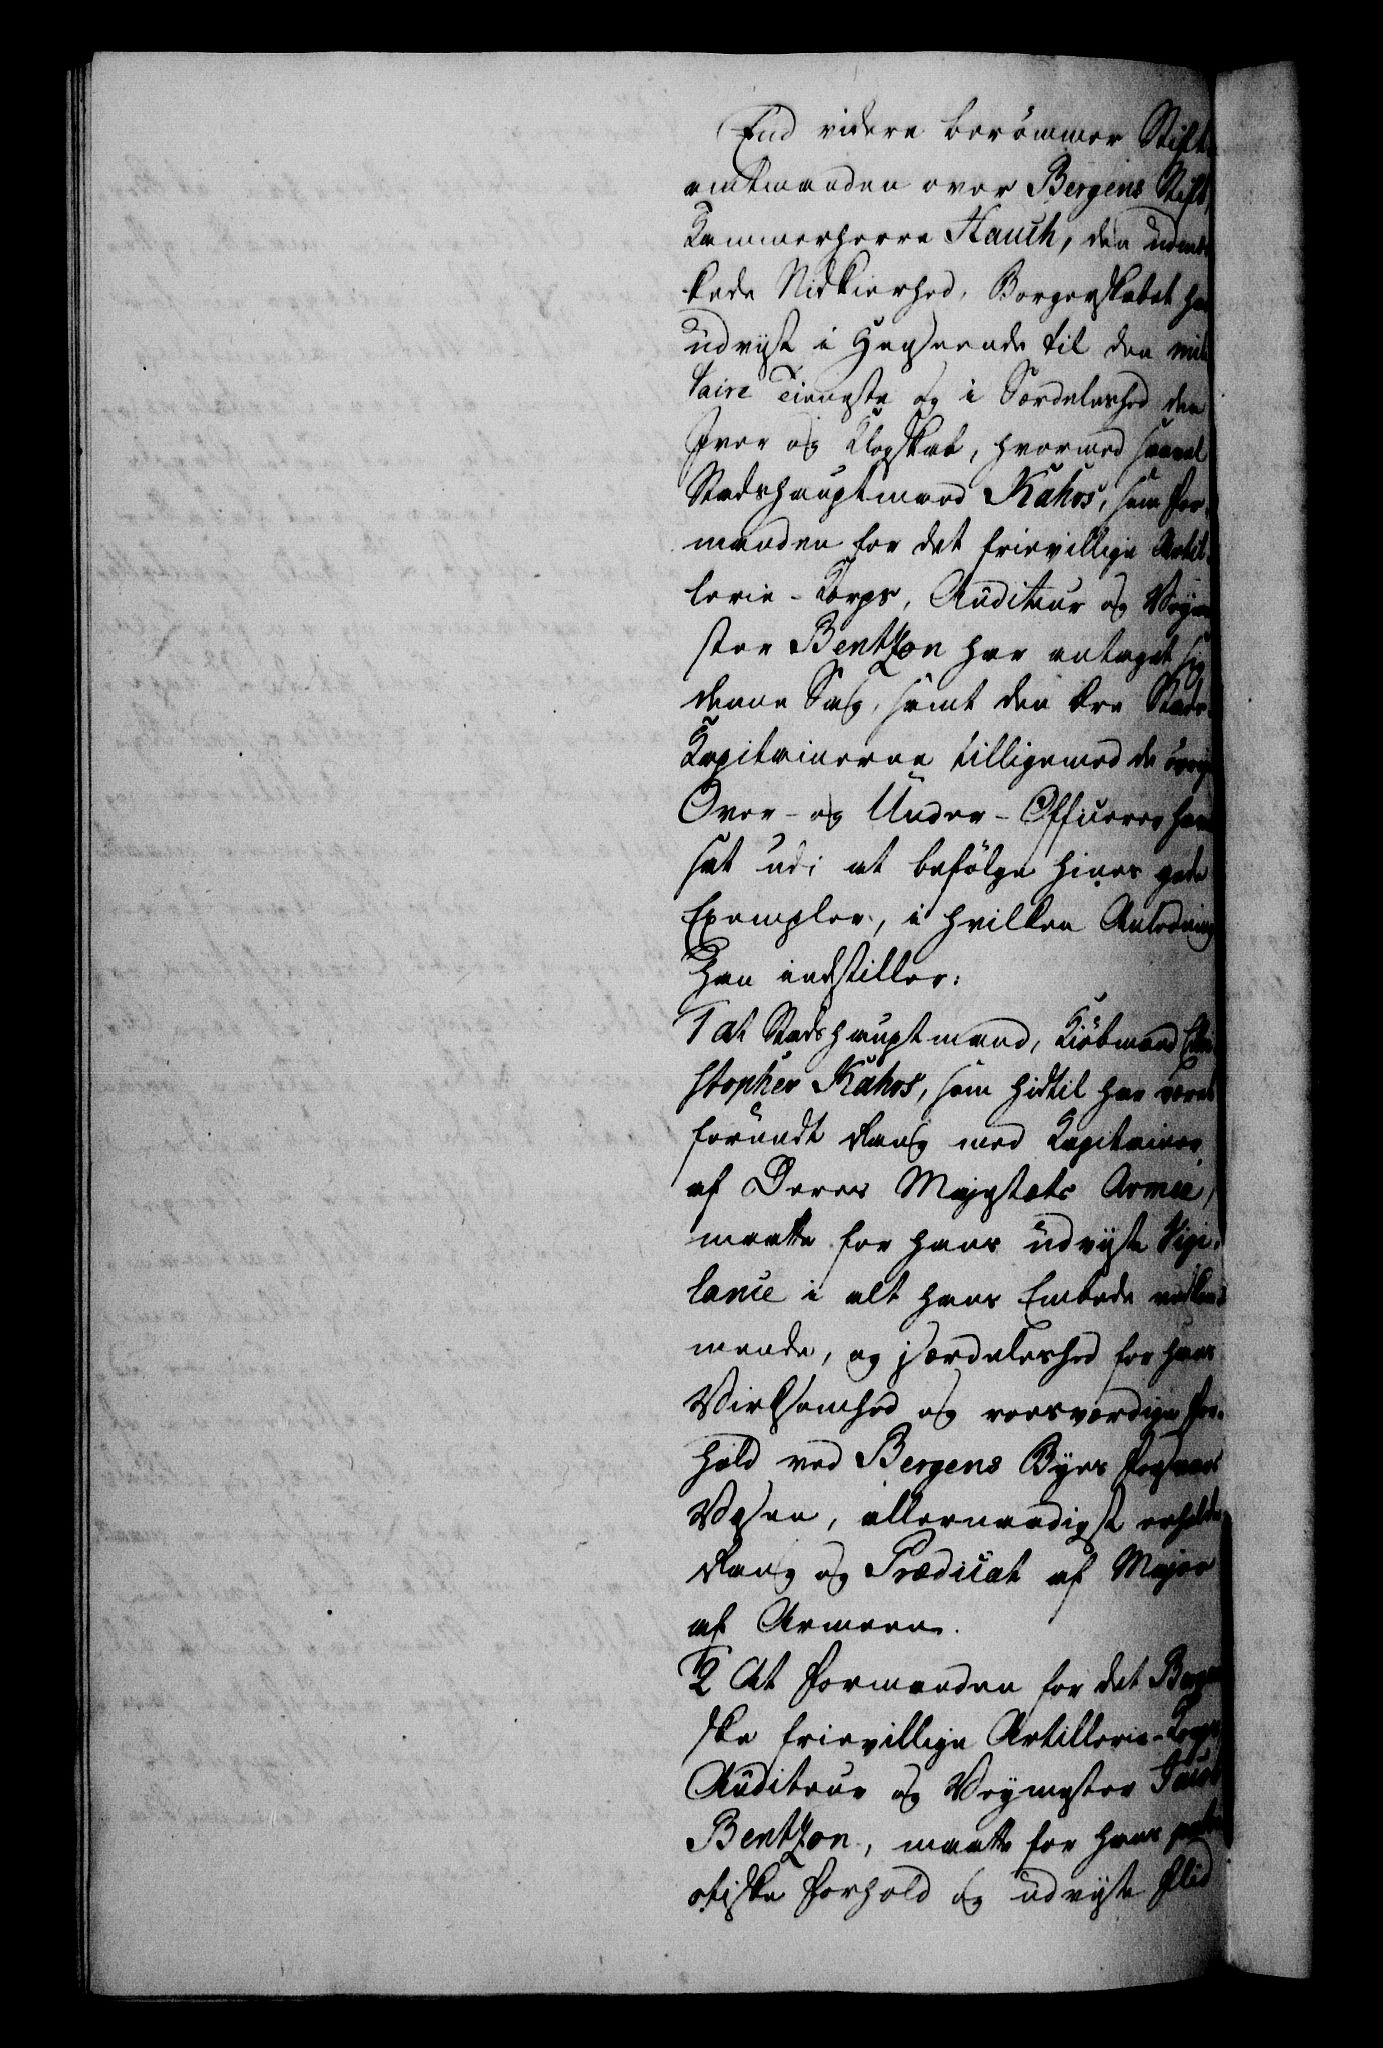 End videre berömmer Stifts
amtmanden over Bergens Stift,
Kammerherre Hauch, den udmær
kede Nidkierhed, Borgerskabet har
udvist i Henseende til den mili
taire Tieneste og i Særdeleshed den
Iver og Klogskab, hvormed saavel
Stadshauptmand Kahrs, som For-
manden for det frievillige Artil-
lerie-Korps, Auditeur og Veyme
ster Bentzon har antaget sig
denne Sag, samt den Ære Stads-
Kapitainerne tilligemed de øvrige
Over- og Under-Officerer have
sat udi at befölge hines gode
Exempler, i hvilken Anledning
Han indstiller:
1 at Stadshauptmand, Kiöbmand Chri
stopher Kahrs, som hidtil har været
forundt Rang med Kapitainer
af Deres Majestæts Armée,
maatte for hans udviste Vigi-
lance i alt hans Embede vedkom
mende, og i særdeleshed for hans
Virksomhed og roesværdige For-
hold ved Bergens Byes Forsvars
Væsen, allernaadigst erholde
Rang og Prædicat af Major
af Armeen.
2 At Formanden for det Bergen
ske frievillige Artillerie-Korps
Auditeur og Veymester Jacob
Bentzon, maatte for hans patri
otiske Forhold og udviste Flid